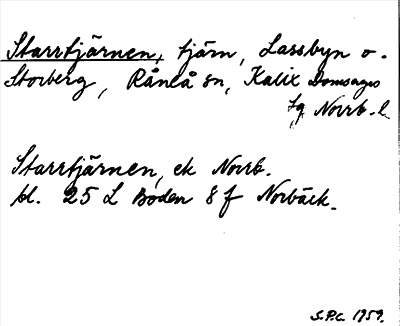 Starrtjärnen, tjärn, Lassbyn o.
Storberg, Råneå sn, Kalix Domsagas
tg Norrb. l.
Starrtjärnen, ek Norrb.
bl. 25 L Boden 8 f Norbäck.
S.P.C. 1959.